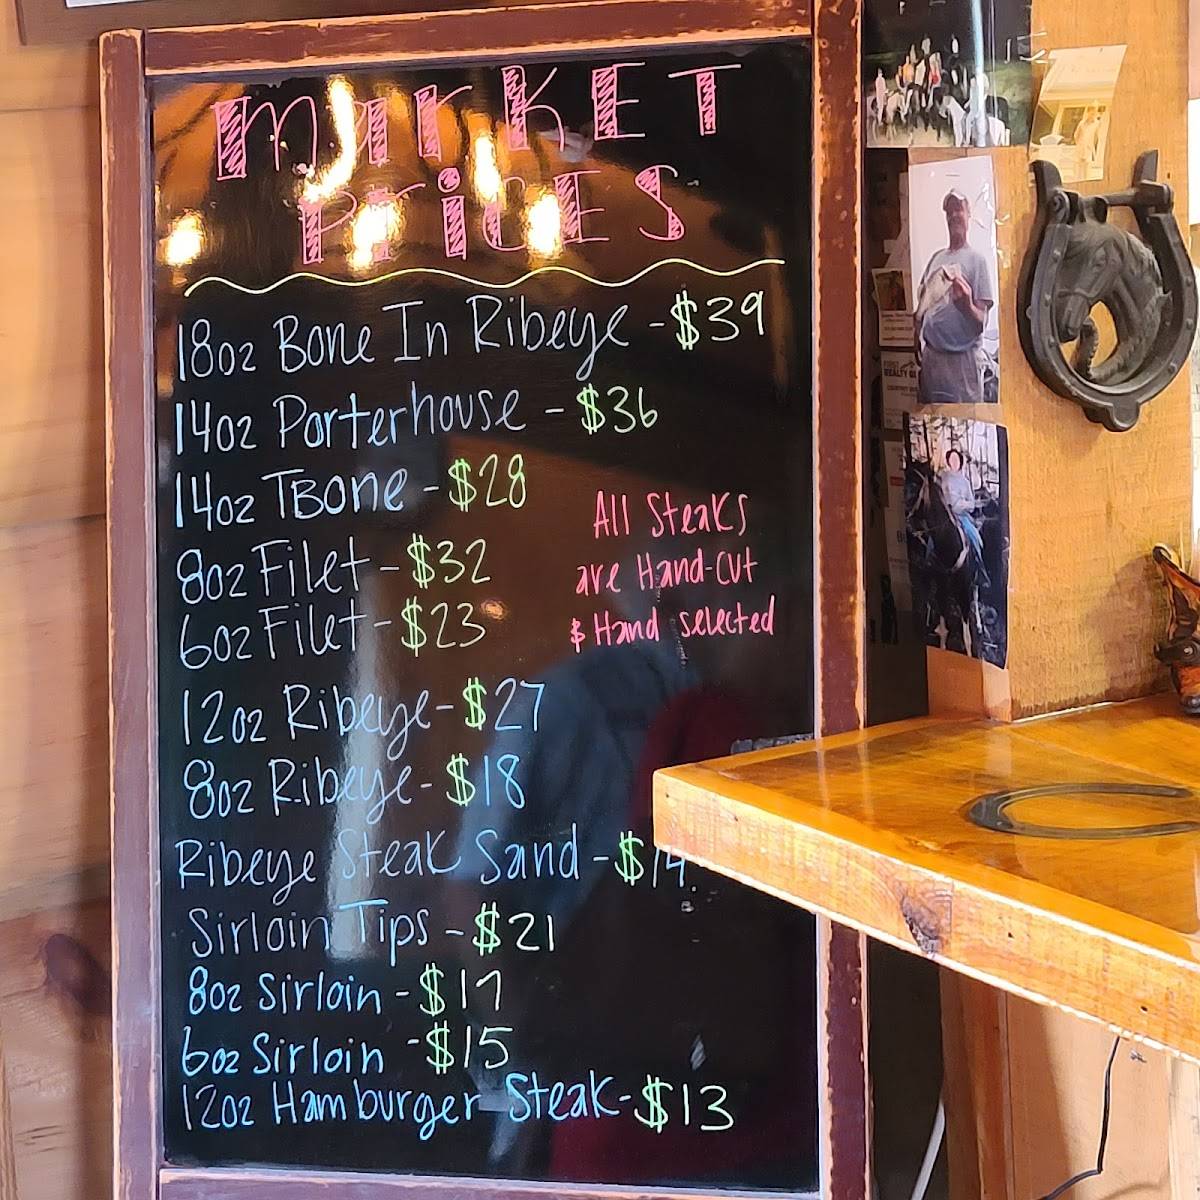 marKET
PricES
18oz Bone In Ribeye - $39
14oz Porterhouse - $36
14oz TBone - $28
All Steaks
are Hand-cut
& Hand selected
8oz Filet - $32
6oz Filet - $23
12oz Ribeye - $27
8oz Ribeye - $18
Ribeye Steak Sand - $14
Sirloin Tips - $21
8oz Sirloin - $17
6oz Sirloin - $15
12oz Hamburger Steak - $13
FIRST
REALTY